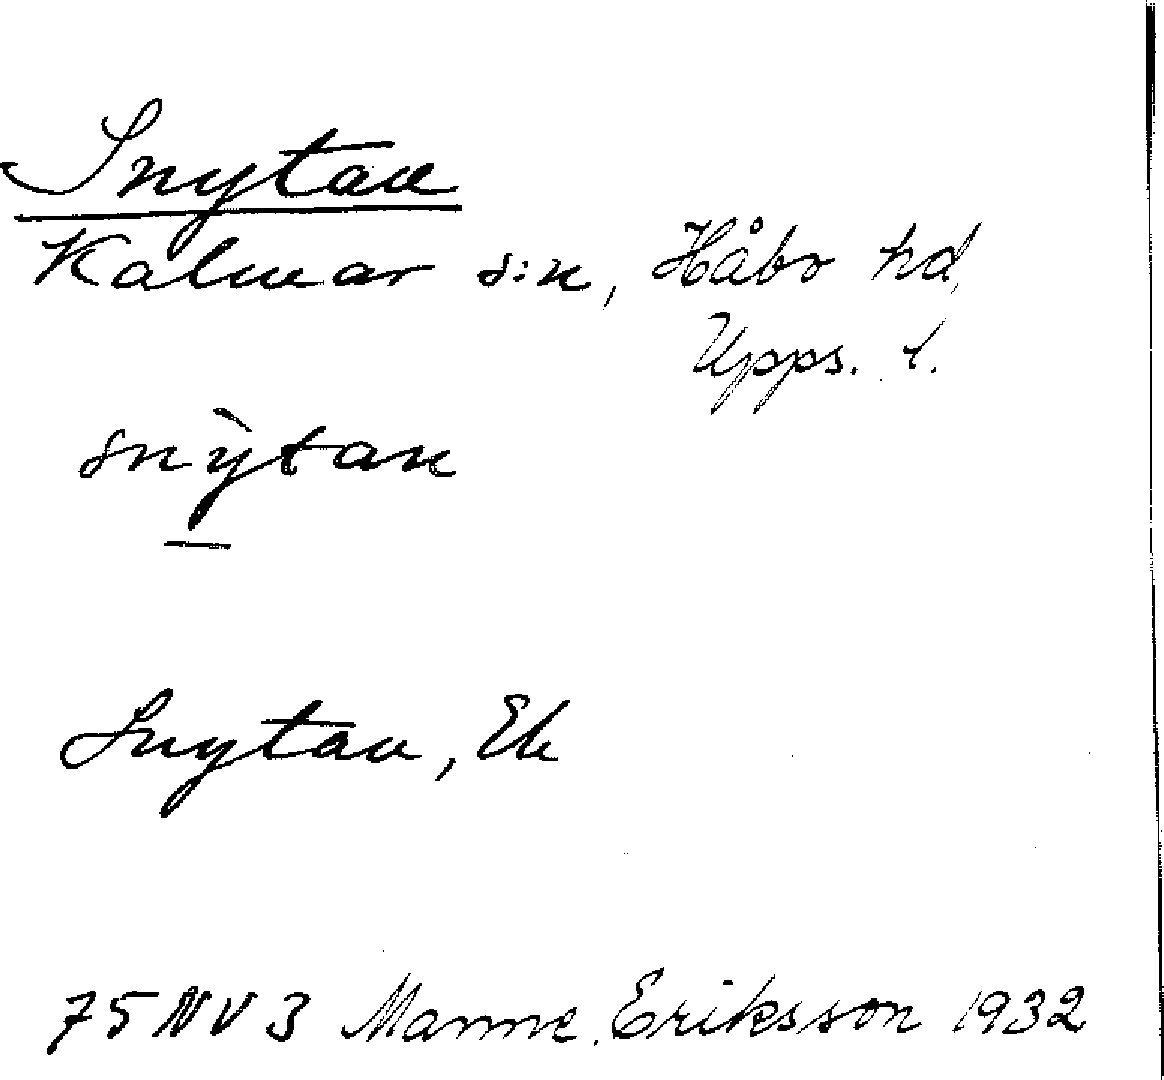 Snytan
Kalmar s:n, Håbo hd,
Upps. l.
snỳtan
Snytan, Ek
75 NV 3 Manne Eriksson 1932